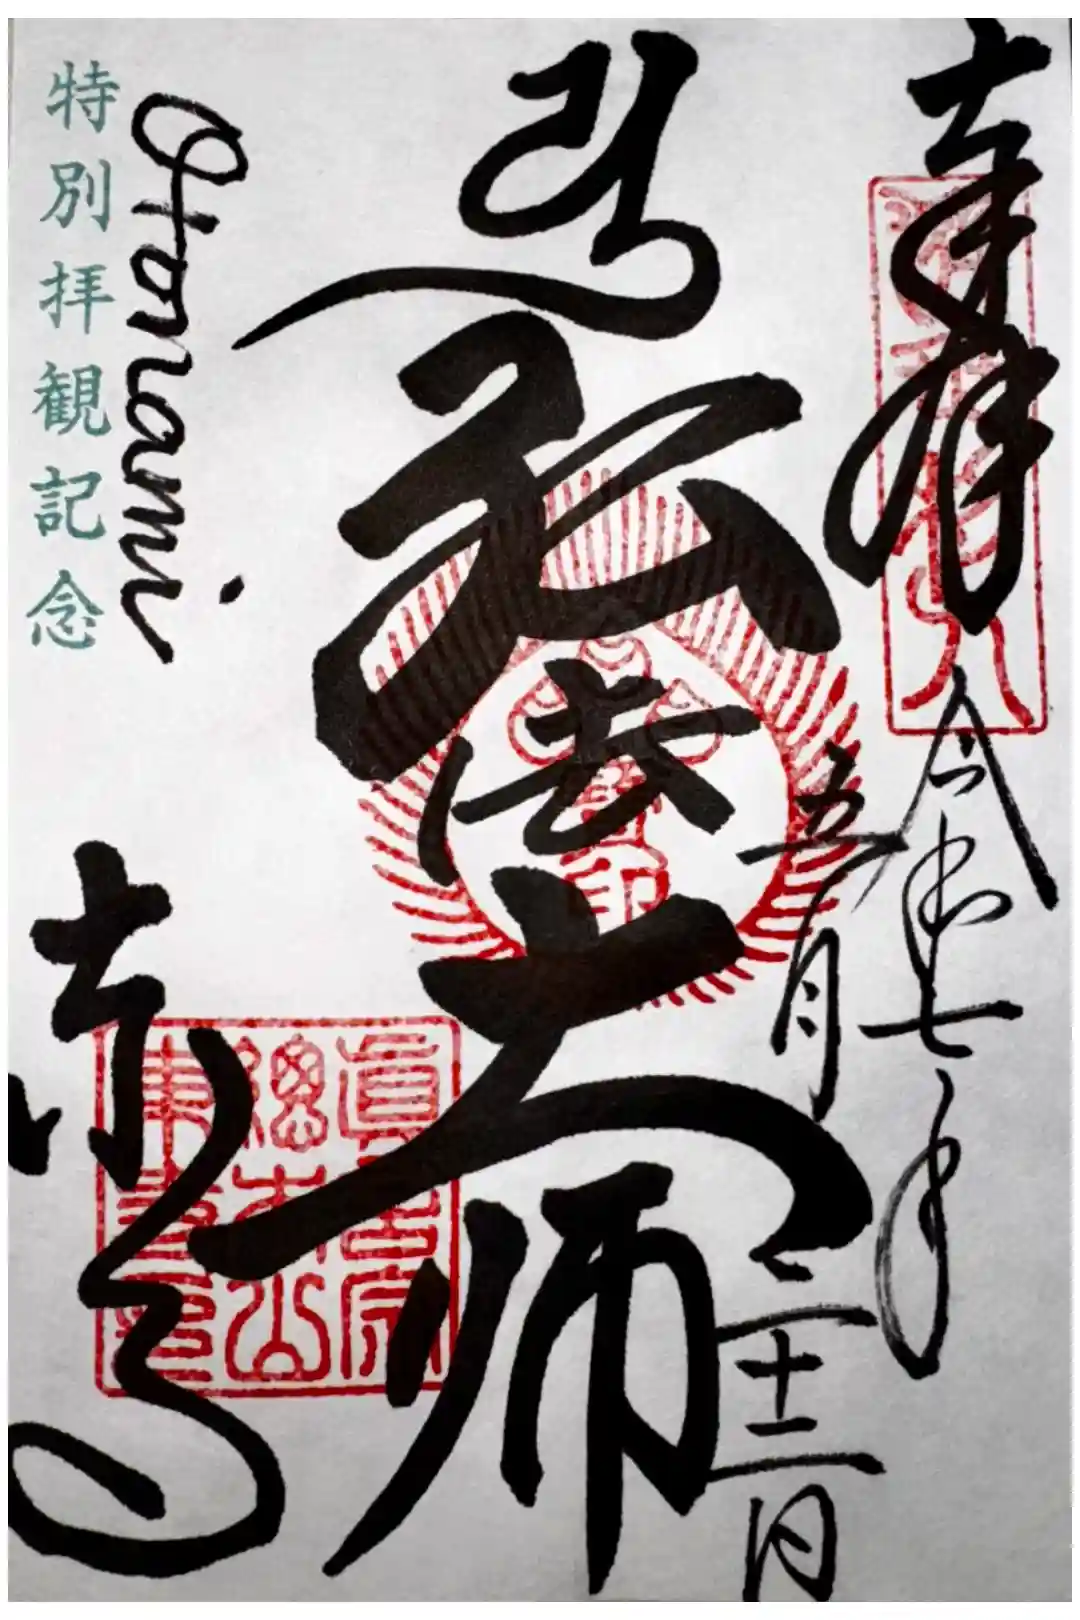 奉拝
令和七年
五月二十二日
弘法大師
眞言宗
總本山
東寺印
東寺
Otonami
特別拝観記念